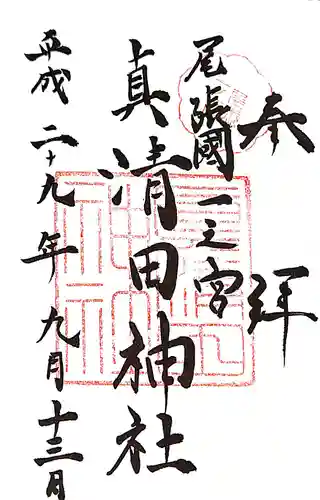 奉拝
尾張國一之宮
真清田神社
平成二十九年九月十三日